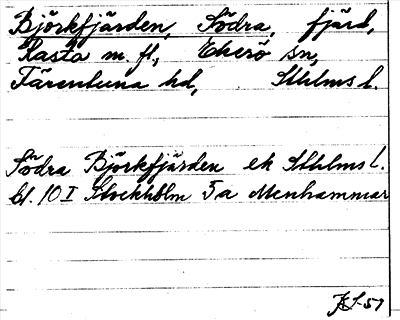 Björkfjärden, Södra, fjärd,
Rasta m. fl., Ekerö sn,
Färentuna hd, Sthlms l.
Södra Björkfjärden ek Sthlms l.
bl. 10 I Stockholm 5a Menhammar